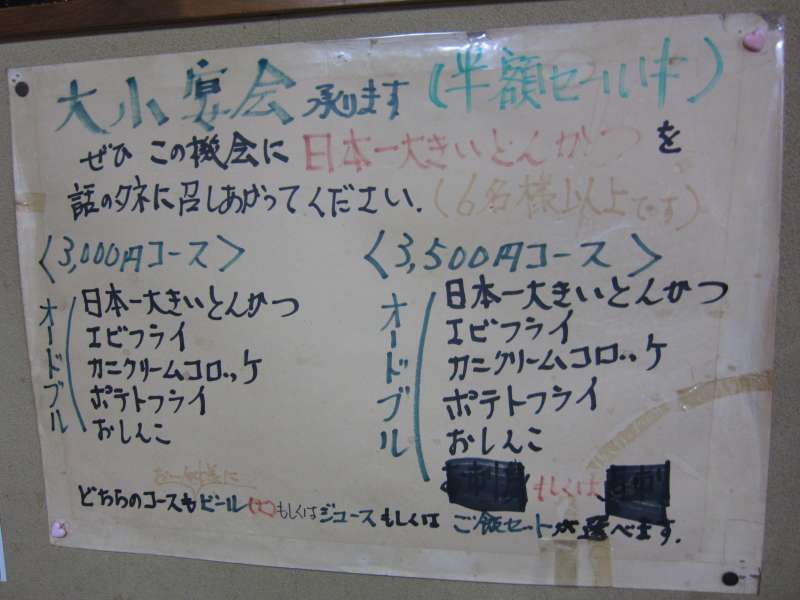 大小宴会 承ります (半額セール中)
ぜひ この機会に 日本一大きいとんかつ を
話のタネに召しあがってください.(6名様以上です)
〈3,000円コース〉
オードブル
日本一大きいとんかつ
エビフライ
カニクリームコロッケ
ポテトフライ
おしんこ
〈3,500円コース〉
オードブル
日本一大きいとんかつ
エビフライ
カニクリームコロッケ
ポテトフライ
おしんこ
もしくは
お一人様に
どちらのコースもビール(大)もしくはジュースもしくは ご飯セートが選べます.